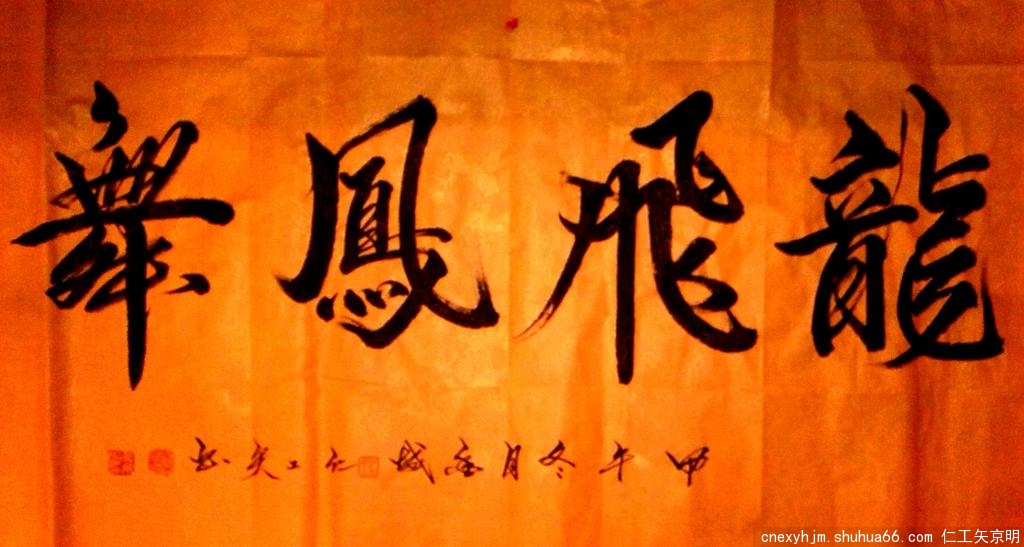 龍飛鳳舞
甲午冬月 城仁工矢书
cnexyhjm.shuhua66.com 仁工矢京明